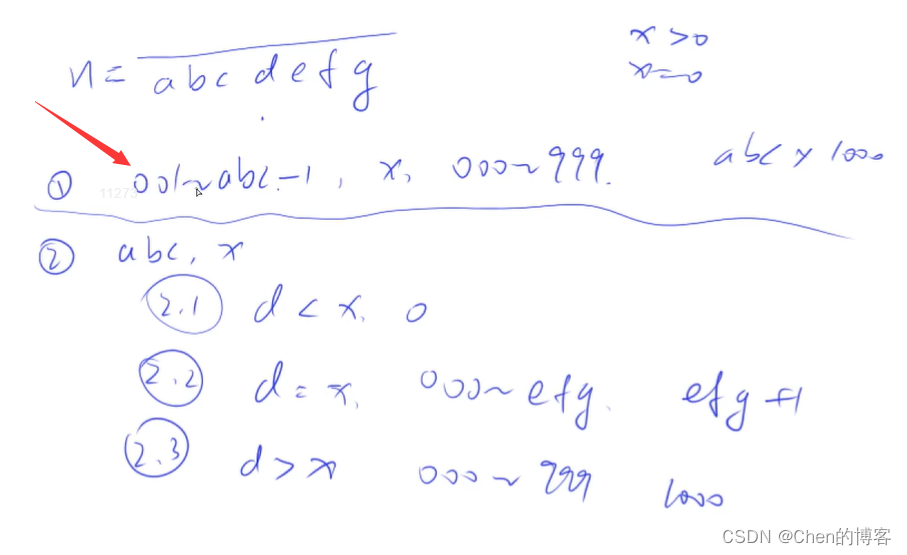 n = abcdefg
x > 0
x = 0
① 001~abc-1, x, 000~999. abc × 1000
1127
② abc, x
2.1 d < x, 0
2.2 d = x, 000~efg. efg+1
2.3 d > x 000~999 1000
CSDN @Chen的博客